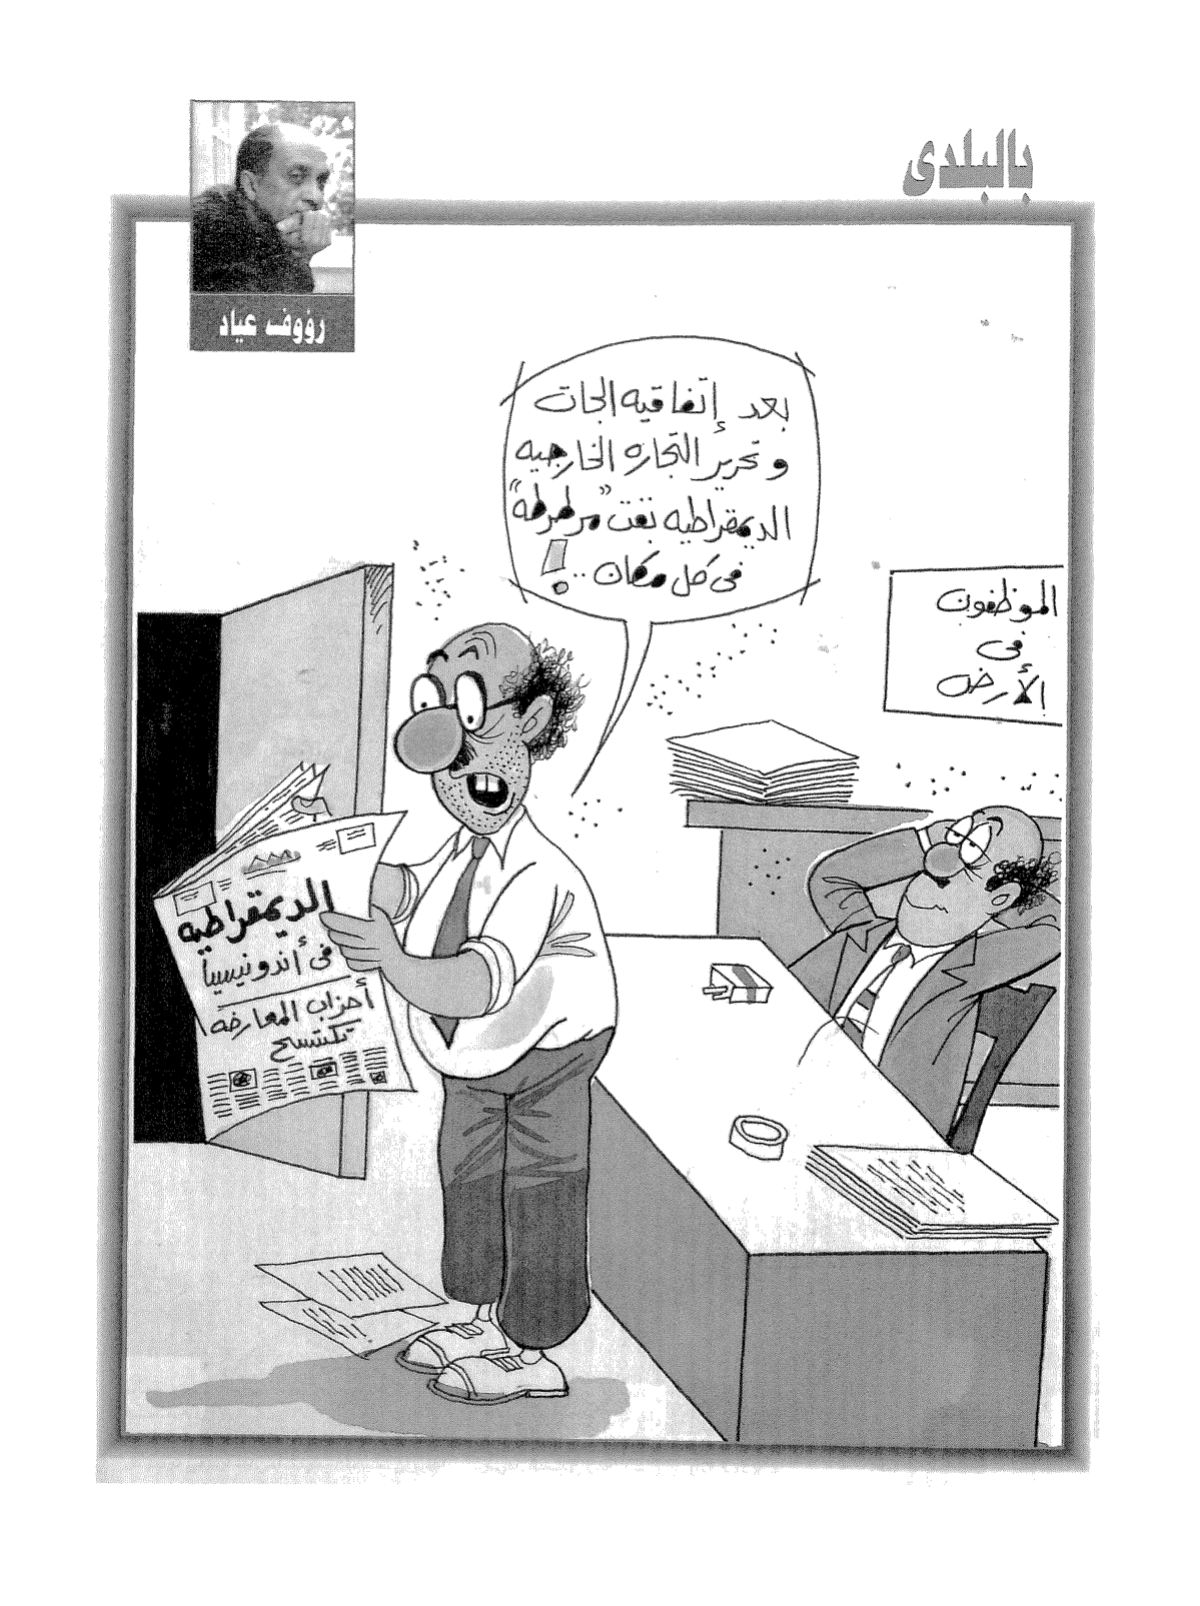 بالبلدى
رؤوف عياد
بعد إتفاقيه الجات
و تحرير التجاره الخارجيه
الديمقراطيه بقت "مرطرطه"
فى كل مكان ..!
الموظفون
فى
الأرض
الديمقراطيه
فى أندونيسيا
أحزاب المعارضه
تكتسح